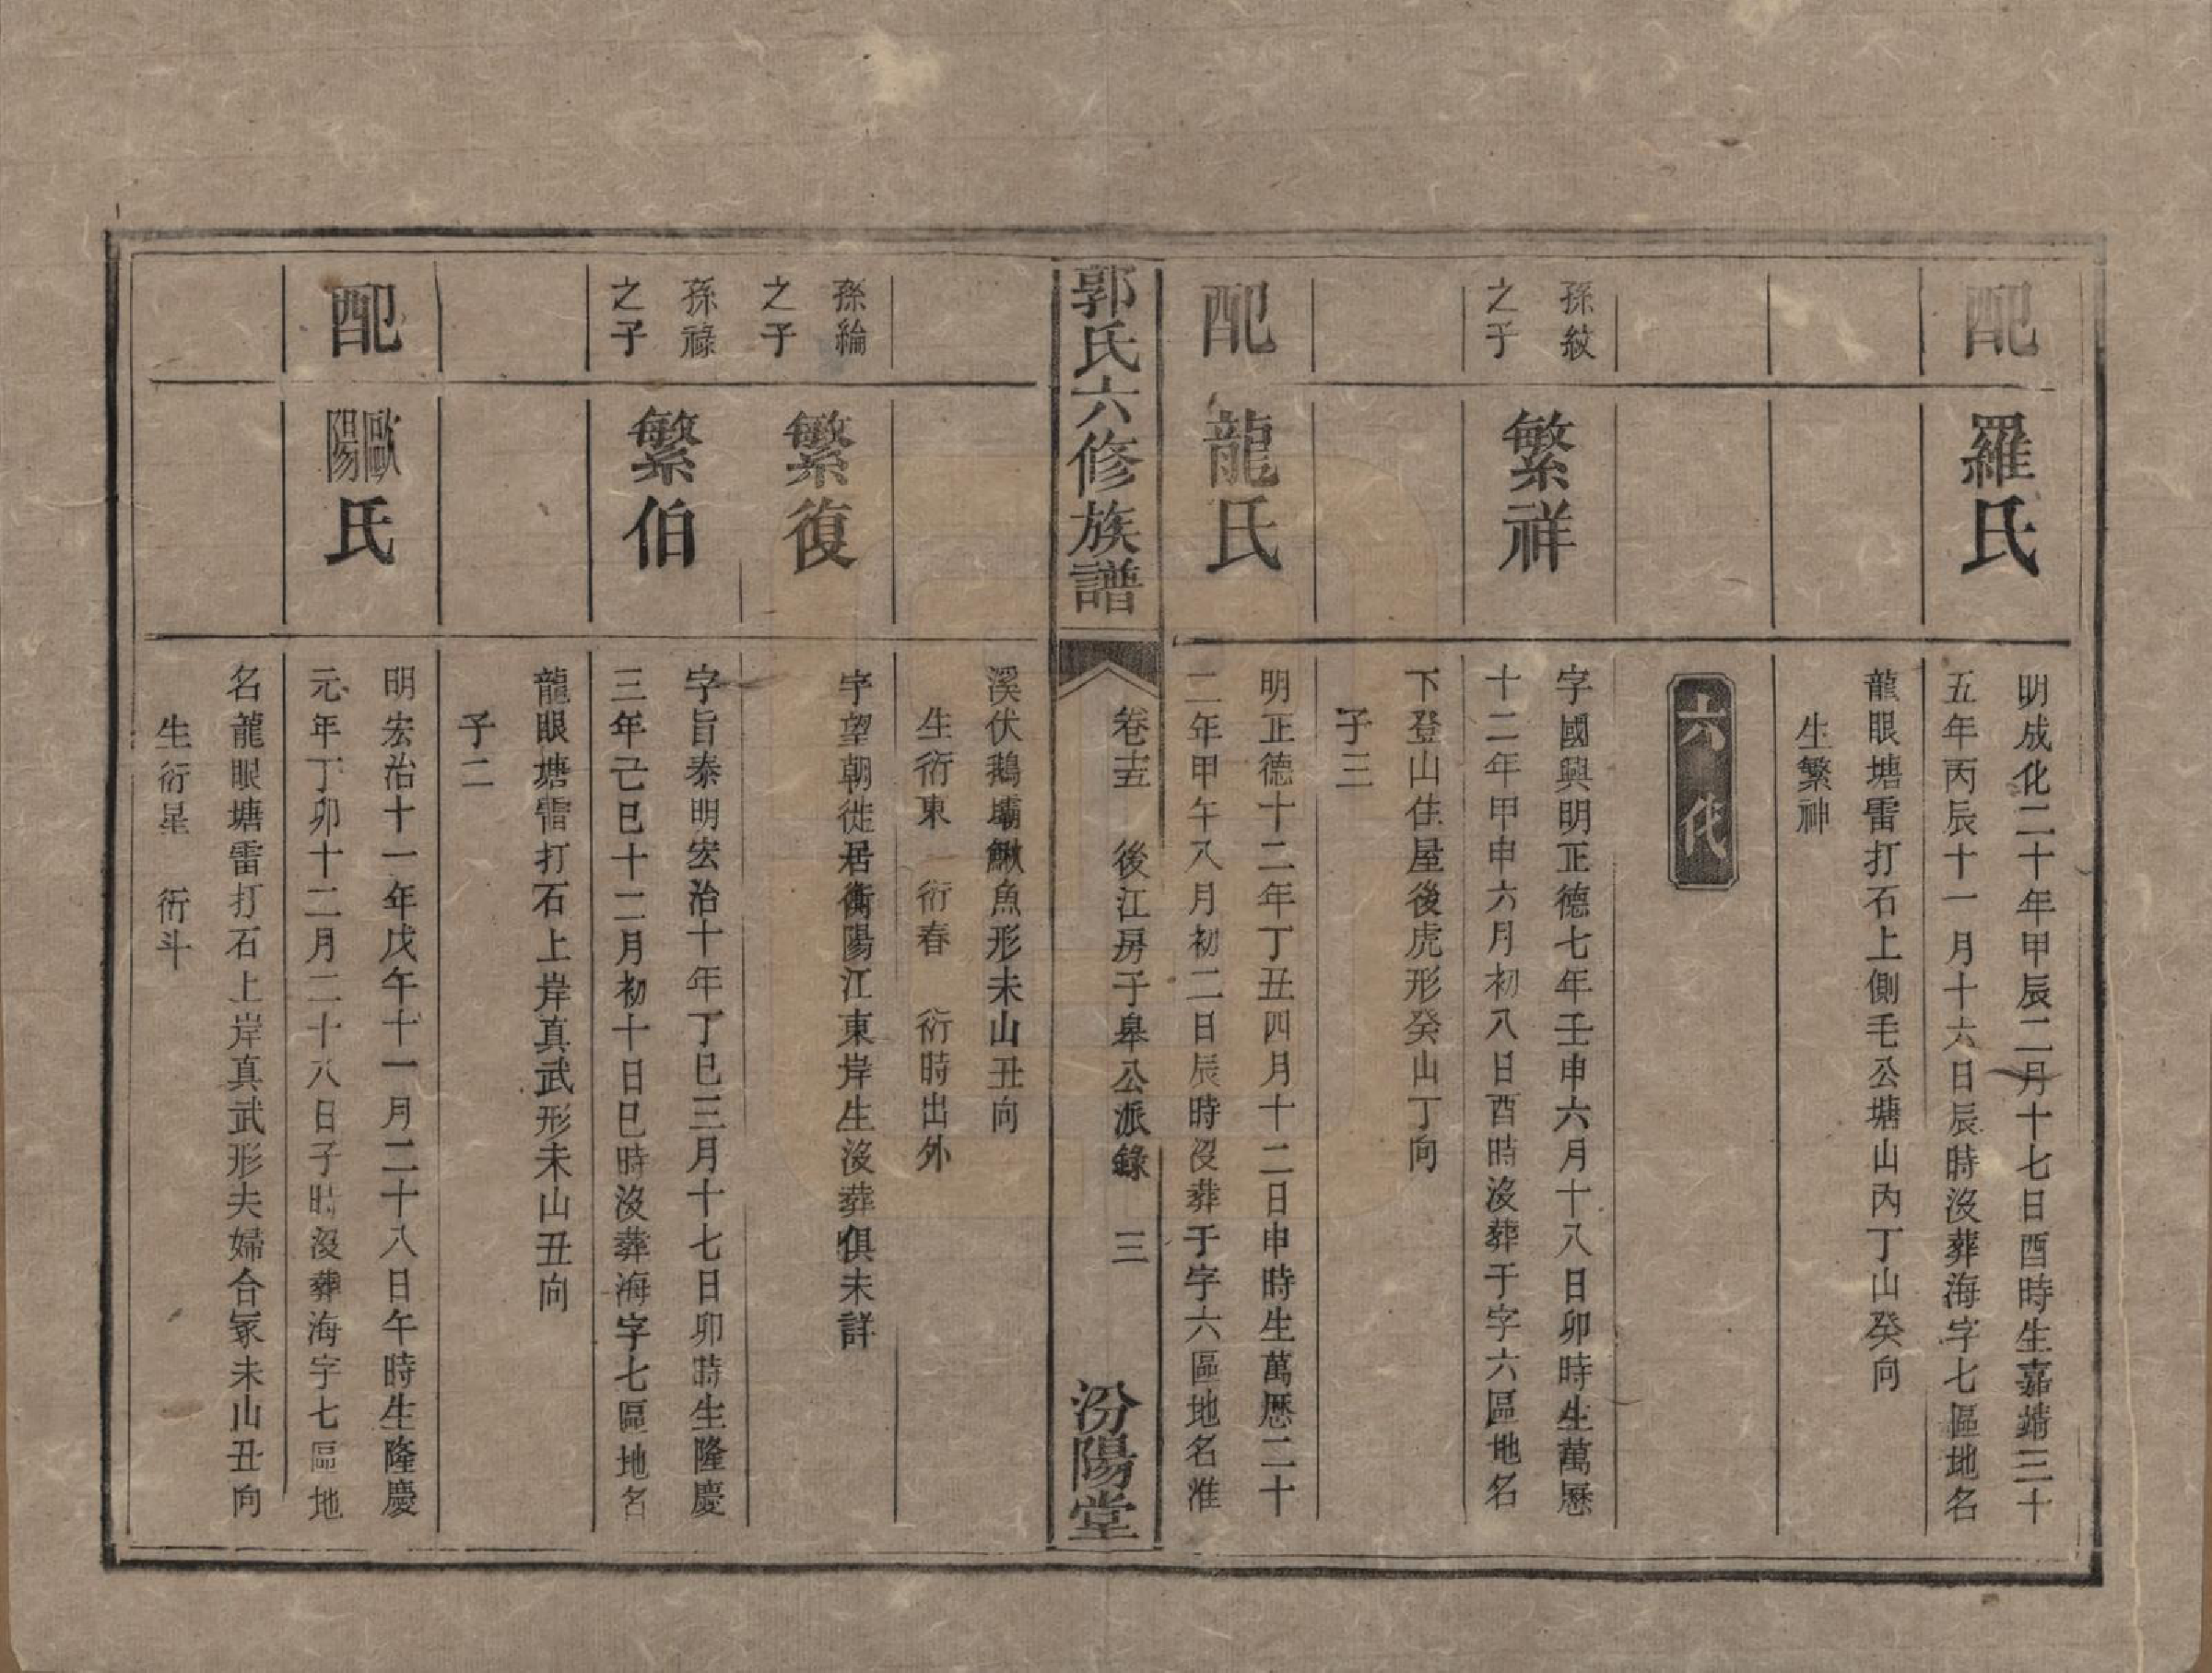 配
羅氏
明成化二十年甲辰二月十七日酉時生嘉靖三十
五年丙辰十一月十六日辰時沒葬海字七區地名
龍眼塘雷打石上側毛公塘山丙丁山癸向
生繁神
六代
孫紋
之子
繁祥
字國興明正德七年壬申六月十八日卯時生萬歷
十二年甲申六月初八日酉時沒葬于字六區地名
下登山住屋後虎形癸山丁向
子三
配
龍氏
明正德十二年丁丑四月十二日申時生萬歷二十
二年甲午八月初二日辰時沒葬于字六區地名淮
郭氏六修族譜
卷十五 後江房子皋公派錄 三
汾陽堂
溪伏鵝壩鰍魚形未山丑向
生衍東 衍春 衍時出外
孫綸
之子
繁復
字望朝徙居衡陽江東岸生沒葬俱未詳
孫祿
之子
繁伯
字旨泰明宏治十年丁巳三月十七日卯時生隆慶
三年己巳十二月初十日巳時沒葬海字七區地名
龍眼塘雷打石上岸真武形未山丑向
子二
配
歐陽氏
明宏治十一年戊午十一月二十八日午時生隆慶
元年丁卯十二月二十八日子時沒葬海字七區地
名龍眼塘雷打石上岸真武形夫婦合冢未山丑向
生衍星 衍斗